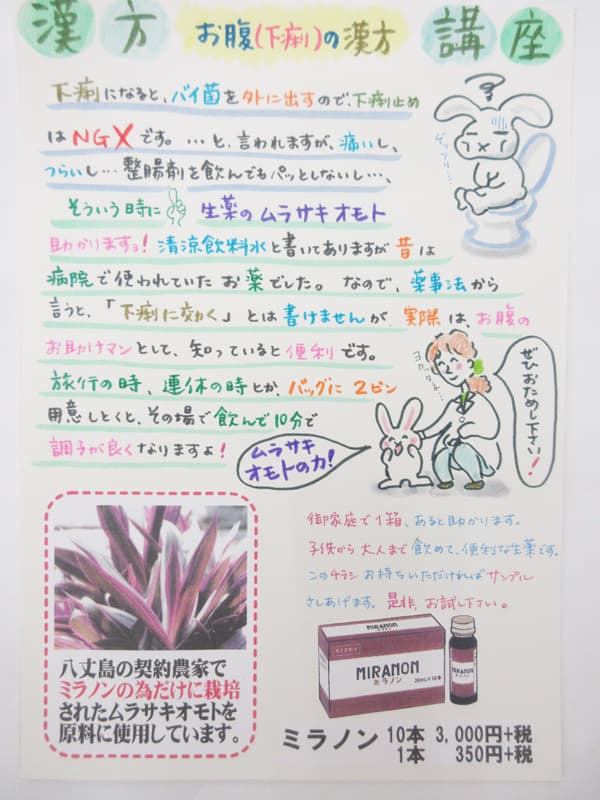 漢方 お腹(下痢)の漢方 講座
下痢になると、バイ菌を外に出すので、下痢止め
はNGXです。…と、言われますが、痛いし、
つらいし…整腸剤を飲んでもパッとしないし…、
そういう時に 生薬のムラサキオモト
助かりますョ!清涼飲料水と書いてありますが昔は
病院で使われていたお薬でした。なので、薬事法から
言うと、「下痢に効く」とは書けませんが、実際は、お腹の
お助けマンとして、知っていると便利です。
旅行の時、連休の時とか、バッグに2ビン
用意しとくと、その場で飲んで10分で
調子が良くなりますよ!
ゲッソリ…
ヨカッタネ…
ぜひおためし下さい!
ムラサキ
オモトの力!
御家庭で1箱、あると助かります。
子供から大人まで飲めて、便利な生薬です。
このチラシお持ちいただければサンプル
さしあげます。是非、お試し下さい。
八丈島の契約農家で
ミラノンの為だけに栽培
されたムラサキオモトを
原料に使用しています。
MIRANON
MIRANON
ミラノン
20ml×10本
MIRANON
ミラノン 10本 3,000円+税
1本 350円+税